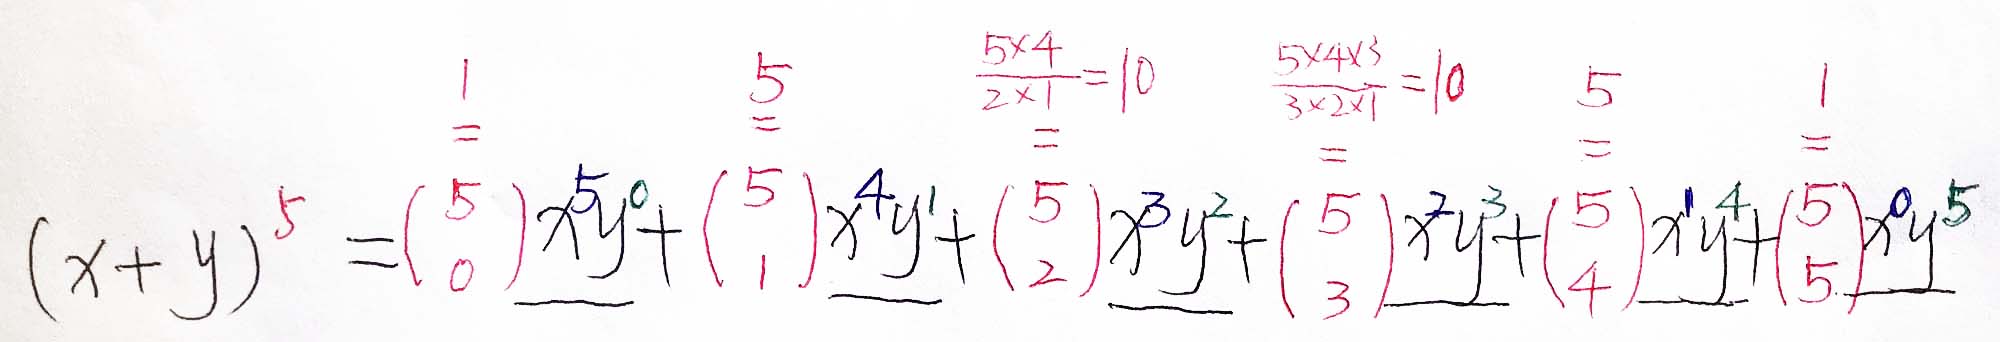 1 5 5×4/2×1=10 5×4×3/3×2×1=10 5 1
= = = = = =
(x+y)^5 = (5 0)x^5y^0+(5 1)x^4y^1+(5 2)x^3y^2+(5 3)x^2y^3+(5 4)x^1y^4+(5 5)x^0y^5